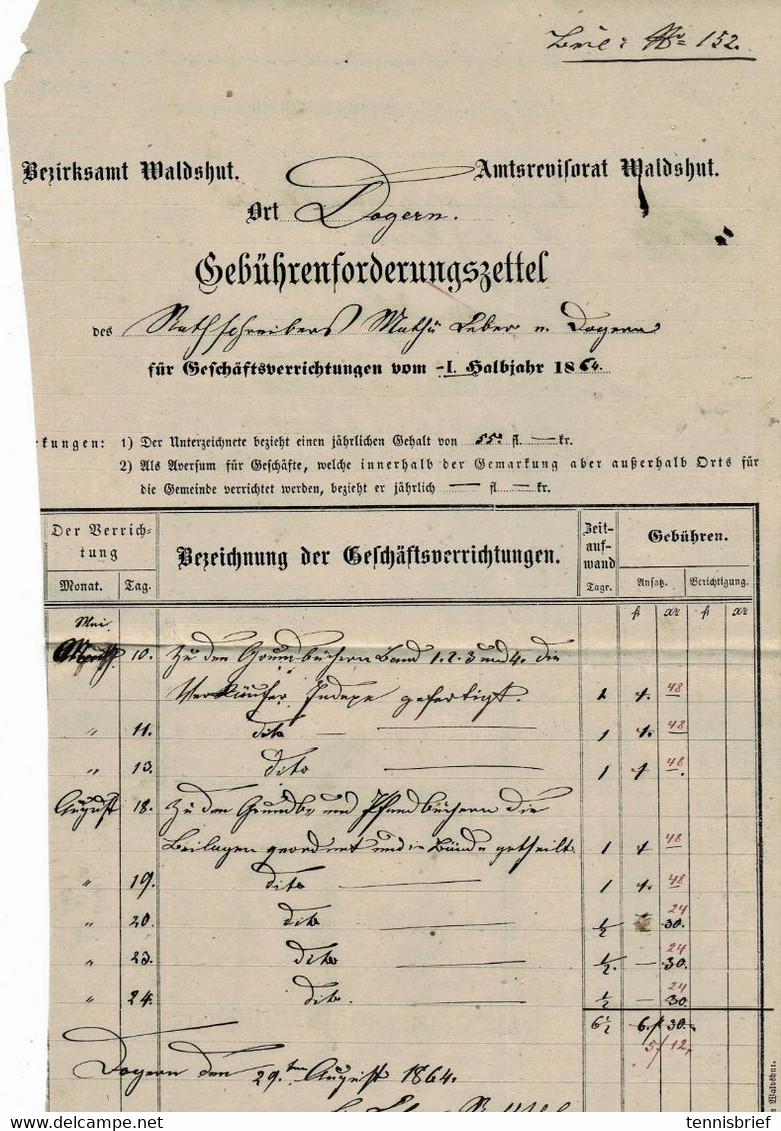 Beil: No 152.
Bezirksamt Waldshut. Amtsrevisorat Waldshut.
Ort Dogern.
Gebührenforderungszettel
des Rathschreibers Mathä Leber v. Dogern
für Geschäftsverrichtungen vom I. Halbjahr 1864.
rkungen: 1) Der Unterzeichnete bezieht einen jährlichen Gehalt von 55 fl. — kr.
2) Als Aversum für Geschäfte, welche innerhalb der Gemarkung aber außerhalb Orts für
die Gemeinde verrichtet werden, bezieht er jährlich — fl — kr.
Der Verrich-
tung
Monat. Tag.
Bezeichnung der Geschäftsverrichtungen.
Zeit-
auf-
wand
Tage.
Gebühren.
Ansatz. Berichtigung.
fl xr fl xr
Mai
10. Zu den Grundbüchern Band 1. 2. 3 und 4. die
Verkäufer Indexe gefertigt. 1 1. 48
" 11. dito — 1 1. 48
" 13. dito — 1 1 48
August 18. Zu den Grundb. und Pfandbüchern die
Beilagen geordnet und in Bünde getheilt 1 1 48
" 19. dito — 1 1. 48
" 20. dito — ½ 30. 24
" 23. dito — ½. — 30. 24
" 24. dito. — ½ — 30 24
6½ 6 f 30.
5 f 12.
Dogern den 29.ten August 1864.
Waldshut.
tennisbrief